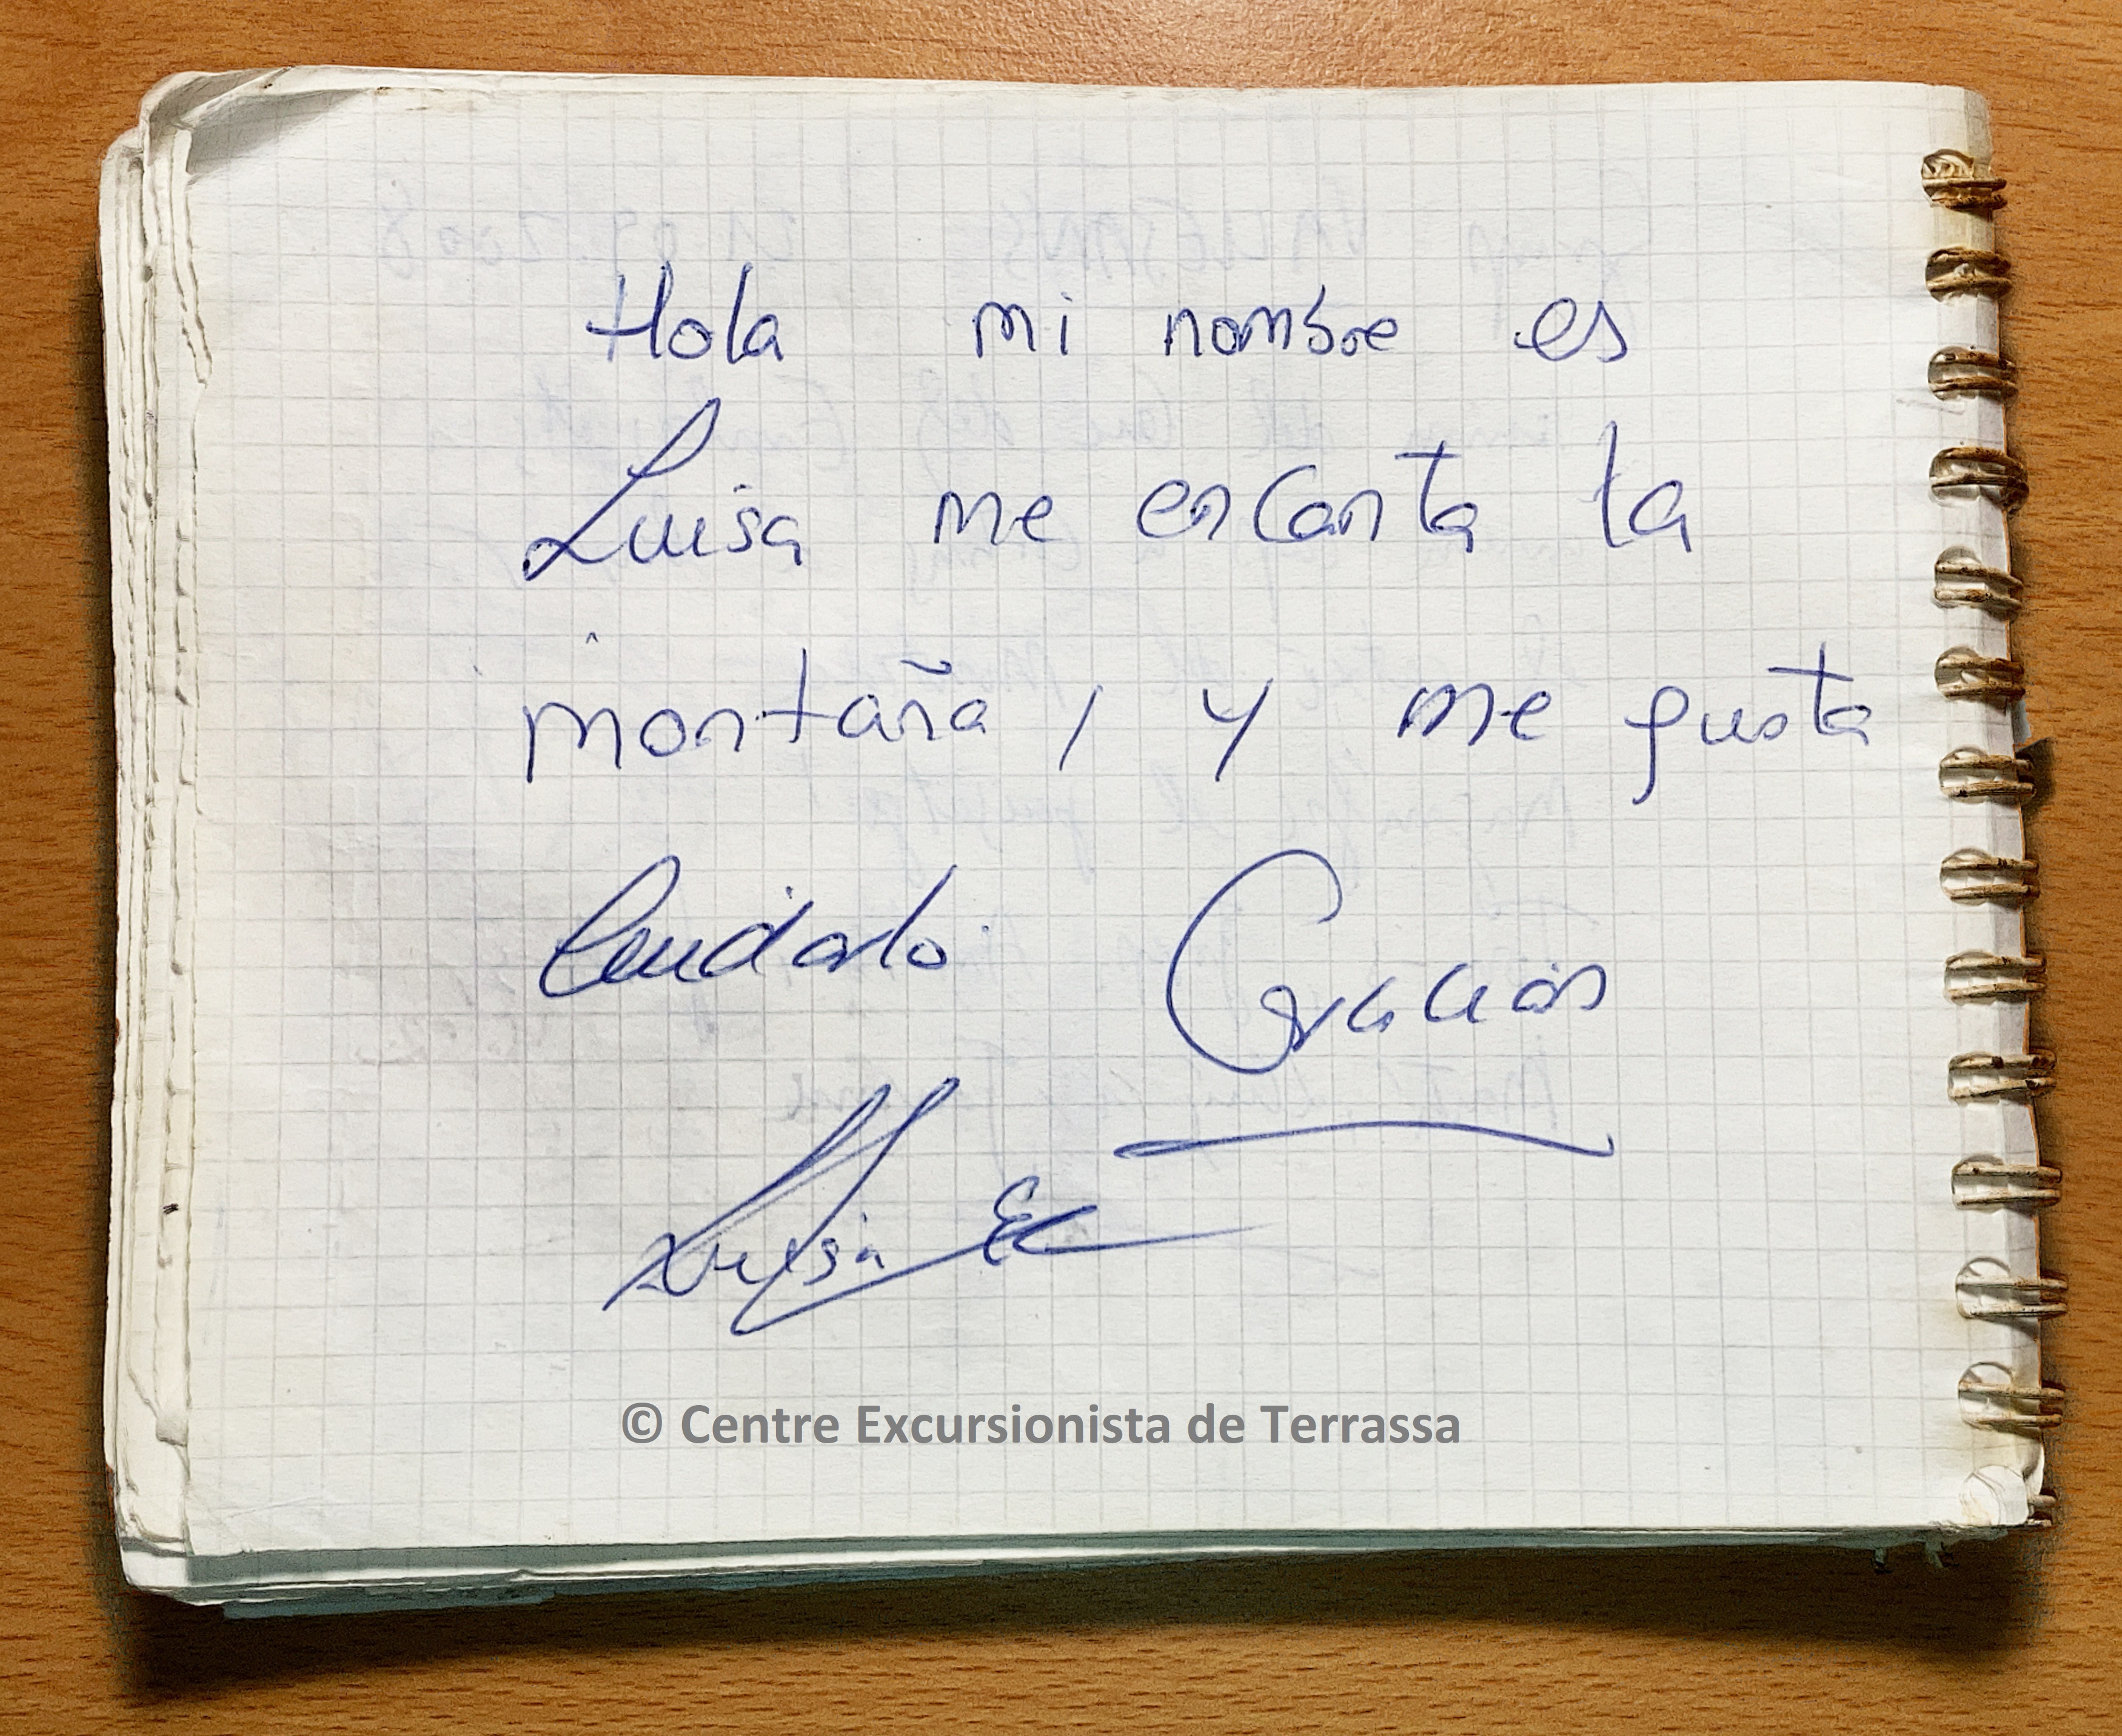 Hola mi nombre es
Luisa me encanta la
montaña, y me gusta
Cuidarlo. Gracias
Luisa
© Centre Excursionista de Terrassa